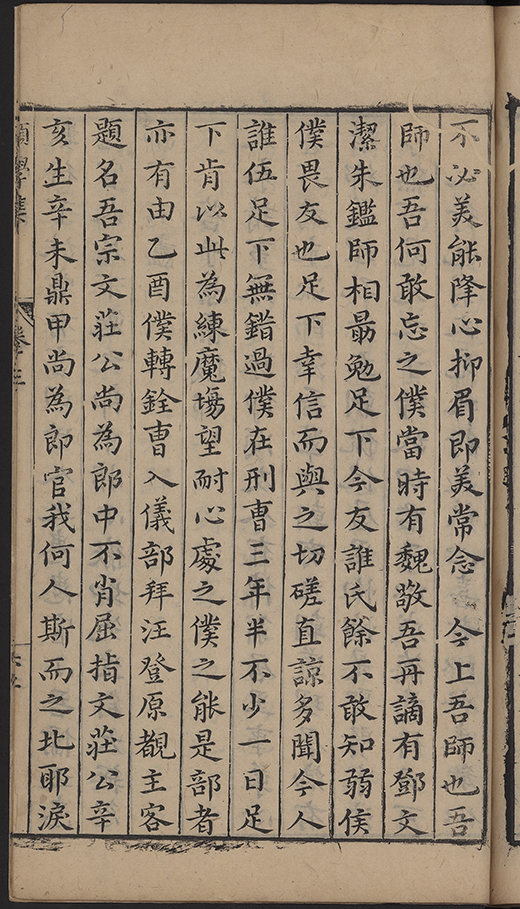 不必美能降心抑眉即美常念　今上吾師也吾
師也吾何敢忘之僕當時有魏敬吾再謫有鄧文
潔朱鑑師相勗勉足下今友誰氏餘不敢知弱侯
僕畏友也足下幸信而與之切磋直諒多聞今人
誰伍足下無錯過僕在刑曹三年半不少一日足
下肯以此為練魔場望耐心處之僕之能是部者
亦有由乙酉僕轉銓曹入儀部拜汪登原覩主客
題名吾宗文莊公尚為郎中不肖屈指文莊公辛
亥生辛未鼎甲尚為郎官我何人斯而之北耶淚
學集
卷之三